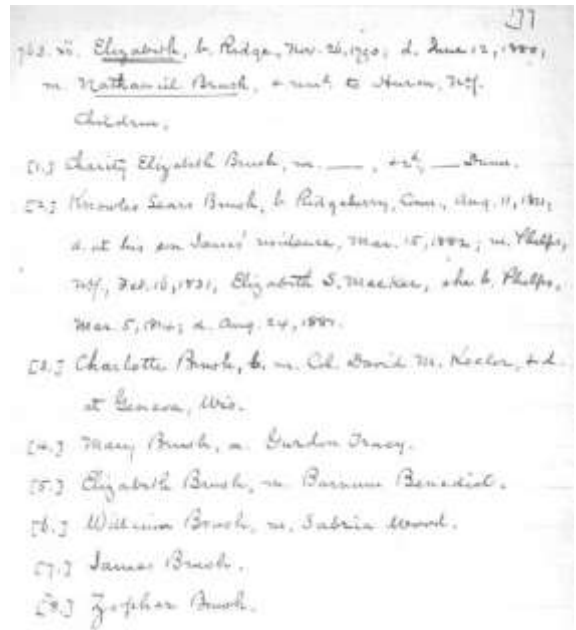 177
xi. Elizabeth, b. Ridge, Nov. 26, 1790; d. June 12, 1880;
m. Nathaniel Brush, & rem'd to Huron, N.Y.
Children.
[1.] Charity Elizabeth Brush, m. ——, & 2d, —— Dunn.
[2.] Knowles Sears Brush, b. Ridgebury, Conn., Aug. 11, 1811;
d. at his son James' residence, Mar. 15, 1882; m. Phelps,
N.Y., Feb. 16, 1831, Elizabeth S. she b. Phelps,
Mar. 5, 1814; d. Aug. 24, 1881.
[3.] Charlotte Brush, b. m. Col. David M. Keeler, & d.
at Geneva, Wis.
[4.] Mary Brush, m. Gurdon Tracy.
[5.] Elizabeth Brush, m. Barnum Benedict.
[6.] William Brush, m. Sabria Wood.
[7.] James Brush.
[8.] Zophar Brush.